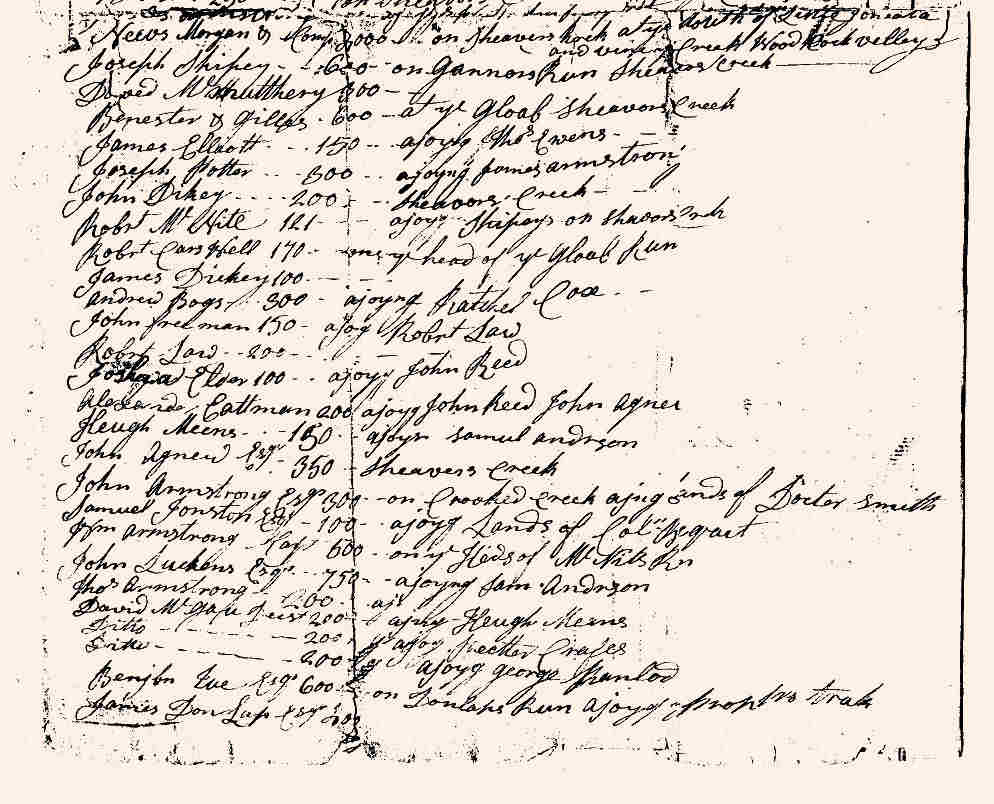 Neevs Morgan & Comp 3000 on Sheavers hock a ye Mouth of Little Joneata
and vine Creek Woodkock velley
Joseph Shipey 600 on Gannors Run Sheavers Creek
David Mc 300
Benester & Gillas 600 at ye Gloab Sheavors Creek
James Elliott 150 ajoyg Thos Ewens
Joseph Potter 300 ajoyng James armstrong
John Dikey 200 Sheavors Creek
Robrt Mc Nite 121 ajoyg Shipeys on Sheavors Crek
Robrt Carswell 170 ye head of ye Gloab Run
James Dickey 100
andrew Bogs 300 ajoyng Coxe
John freeman 150 ajoyg Robrt Law
Robrt Law 200
Joshua Elder 100 ajoyg John Reed
Alexandr Eattman 200 ajoyg John Reed John Agner
Heugh Meens 150 ajoyn Samul andrson
John Agnew Esqr 350 Sheavers Creek
John Armstrong Esqr 300 on Crooked Creek ajng Lands of Docter Smith
Samuel Jonston Esqr 100 ajoyg Lands of Coln
Wm armstrong 600 on ye Heds of Mc Nits Rn
John Luckens Esqr 750 ajoyng Sam Andrson
Thos Armstrong 200
David Mc 200 ajoyng Heugh Meens
Ditto 200 ajoyg
Ditto 200 ajoyg george
Benjbn Esqr 600
James Donlap Esqr 200 on Donlaps Run ajoyg trak